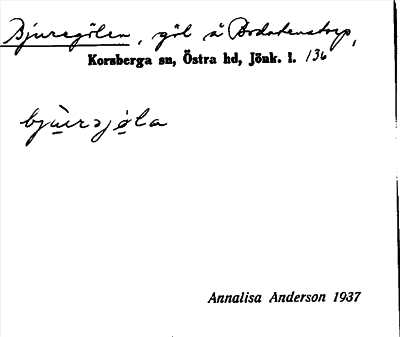 Bjuregölen, göl å Bodatenstorp,
Korsberga sn, Östra hd, Jönk. l. 136
bjùrsjøla
Annalisa Anderson 1937